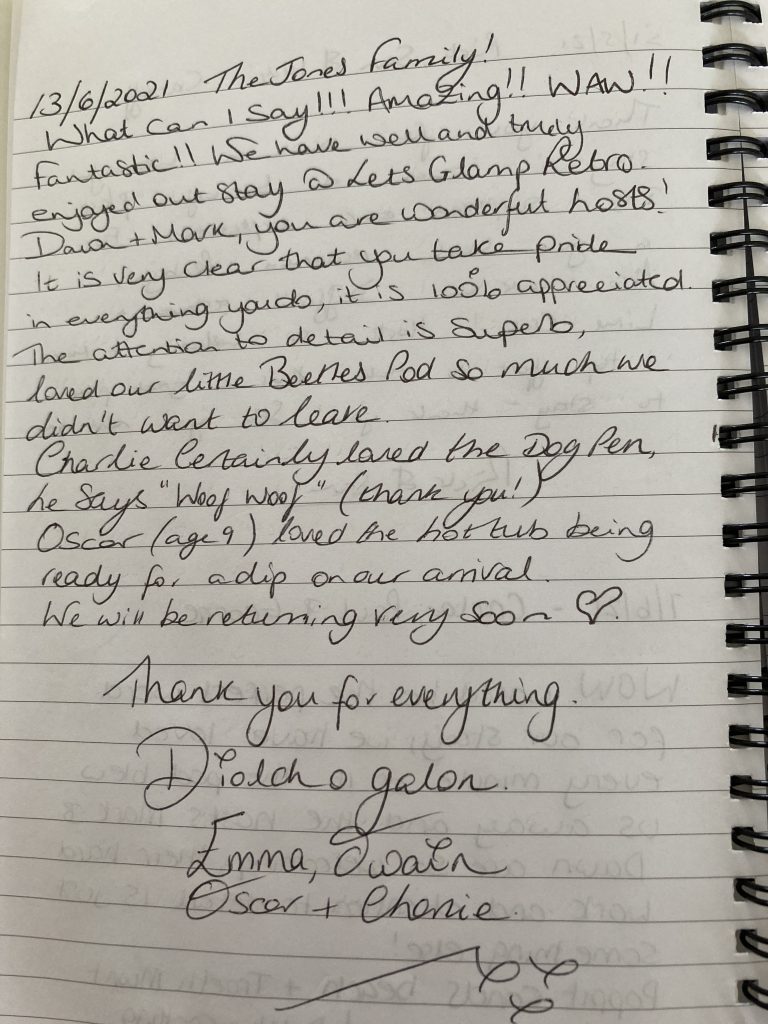 13/6/2021 The Jones Family!
What Can I Say!!! Amazing!! WAW!!
fantastic!! We have well and truly
enjoyed out stay @ Lets Glamp Retro.
Dawn + Mark, you are wonderful hosts!
It is very clear that you take pride
in everything you do, it is 100% appreciated.
The attention to detail is Superb,
loved our little Beetles Pod so much we
didn't want to leave.
Charlie Certainly loved the Dog Pen,
he Says "Woof Woof" (thank you!)
Oscar (age 9) loved the hot tub being
ready for a dip on our arrival.
We will be returning very soon ♡.
Thank you for everything.
Diolch o galon.
Emma, Owain
Oscar + Charlie.